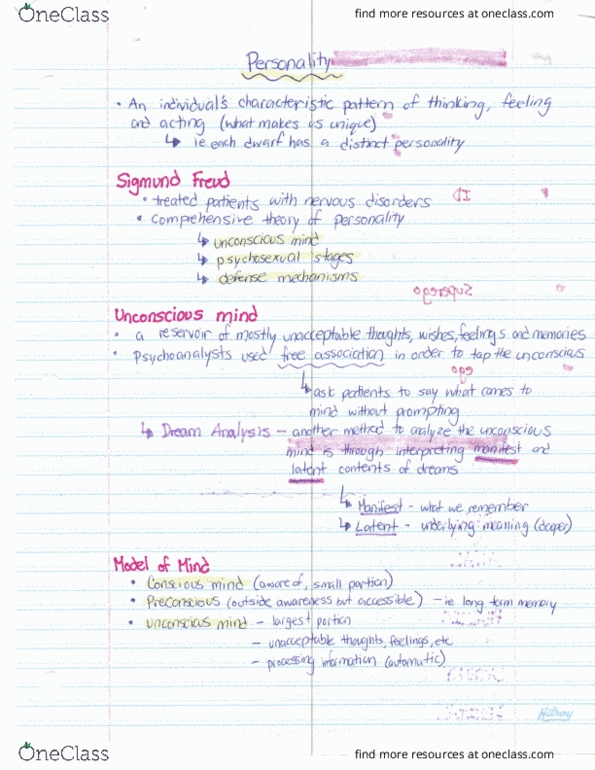 OneClass
find more resources at oneclass.com
Personality
• An individual's characteristic pattern of thinking, feeling
and acting (what makes us unique)
↳ ie each dwarf has a distinct personality
Sigmund Freud
• treated patients with nervous disorders
• comprehensive theory of personality
↳ unconscious mind
↳ psychosexual stages
↳ defense mechanisms
Unconscious mind
• a reservoir of mostly unacceptable thoughts, wishes, feelings and memories
• Psychoanalysts used free association in order to tap the unconscious
↳ ask patients to say what comes to
mind without prompting
↳ Dream Analysis - another method to analyze the unconscious
mind is through interpreting manifest and
latent contents of dreams
↳ Manifest - what we remember
↳ Latent - underlying meaning (deeper)
Model of Mind
• Conscious mind (aware of, small portion)
• Preconscious (outside awareness but accessible) - ie long term memory
• unconscious mind - largest portion
- unacceptable thoughts, feelings, etc
- processing information (automatic)
Hilroy
OneClass
find more resources at oneclass.com